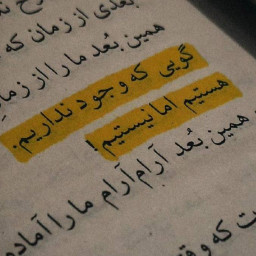 بعدی از زمان که
همین بُعد ما را از زمان
گویی که وجود نداریم.
هستیم اما نیستیم!
همین بُعد آرام‌آرام ما را آماده
ت که وق